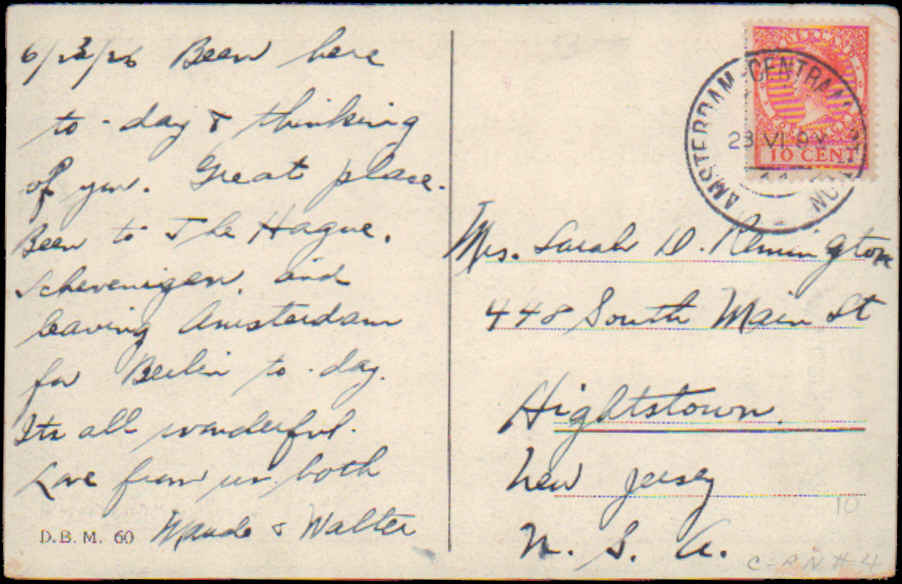 6/23/26 Been here
to-day & thinking
of you. Great place.
Been to The Hague,
Schevenigen, and
leaving Amsterdam
for Berlin to-day.
Its all wonderful.
Love from us both
Maude & Walter
D.B.M. 60
AMSTERDAM CENTRAAL STATION
23 VI
10 CENT
Mrs. Sarah D. Remington
448 South Main St
Hightstown,
New Jersey
U. S. A.
10
C-RN#4